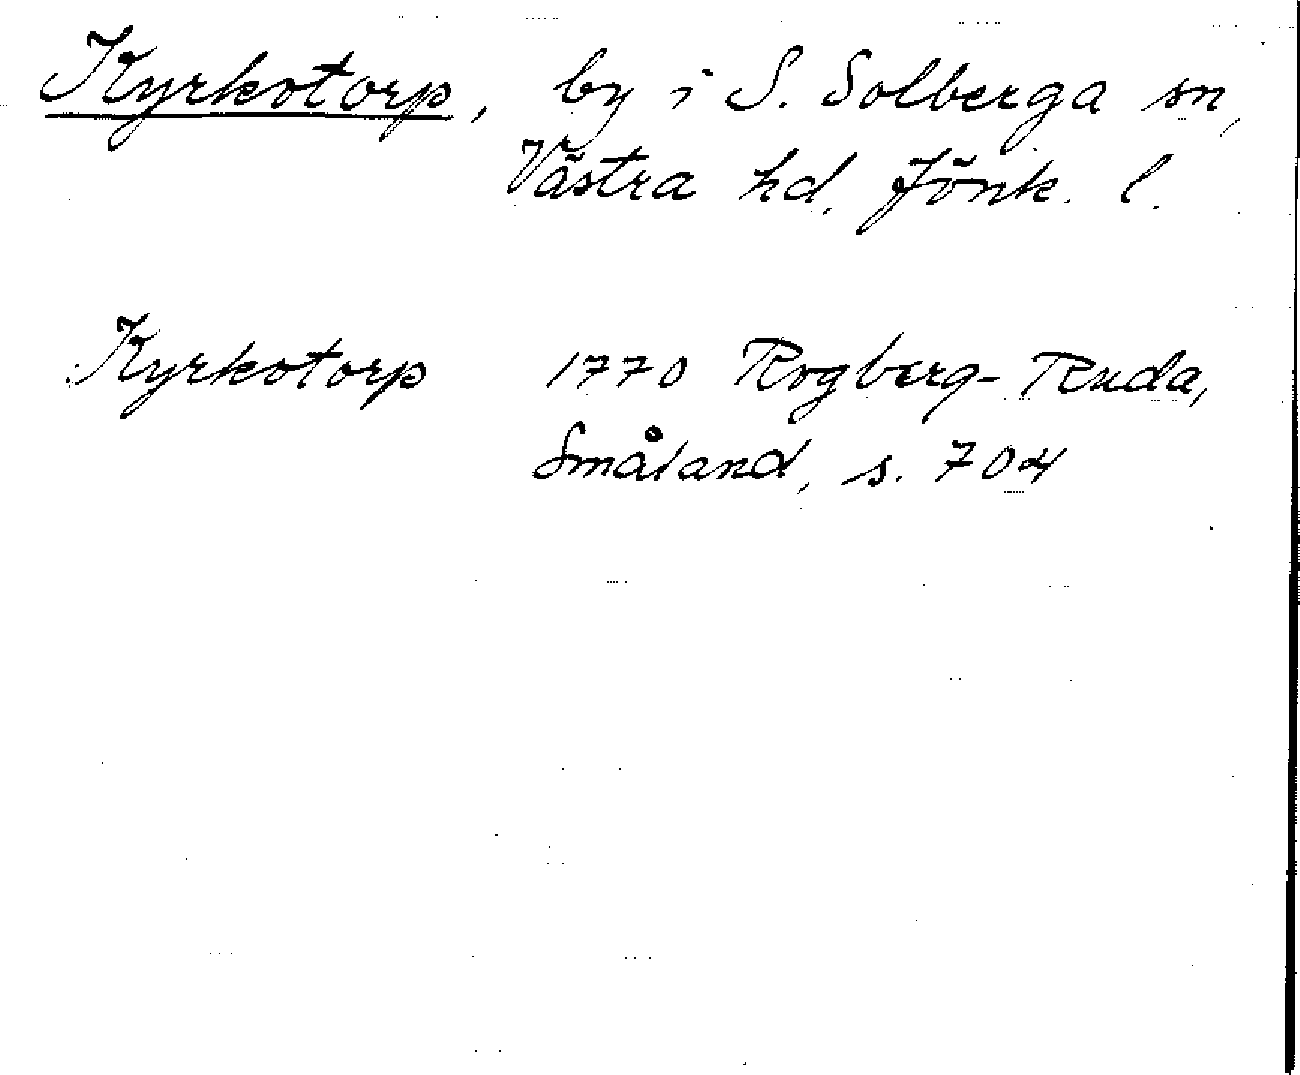 Kyrkotorp, by i S. Solberga sn,
Västra hd, Jönk. l.
Kyrkotorp 1770 Rogberg-Ruda,
Småland, s. 704